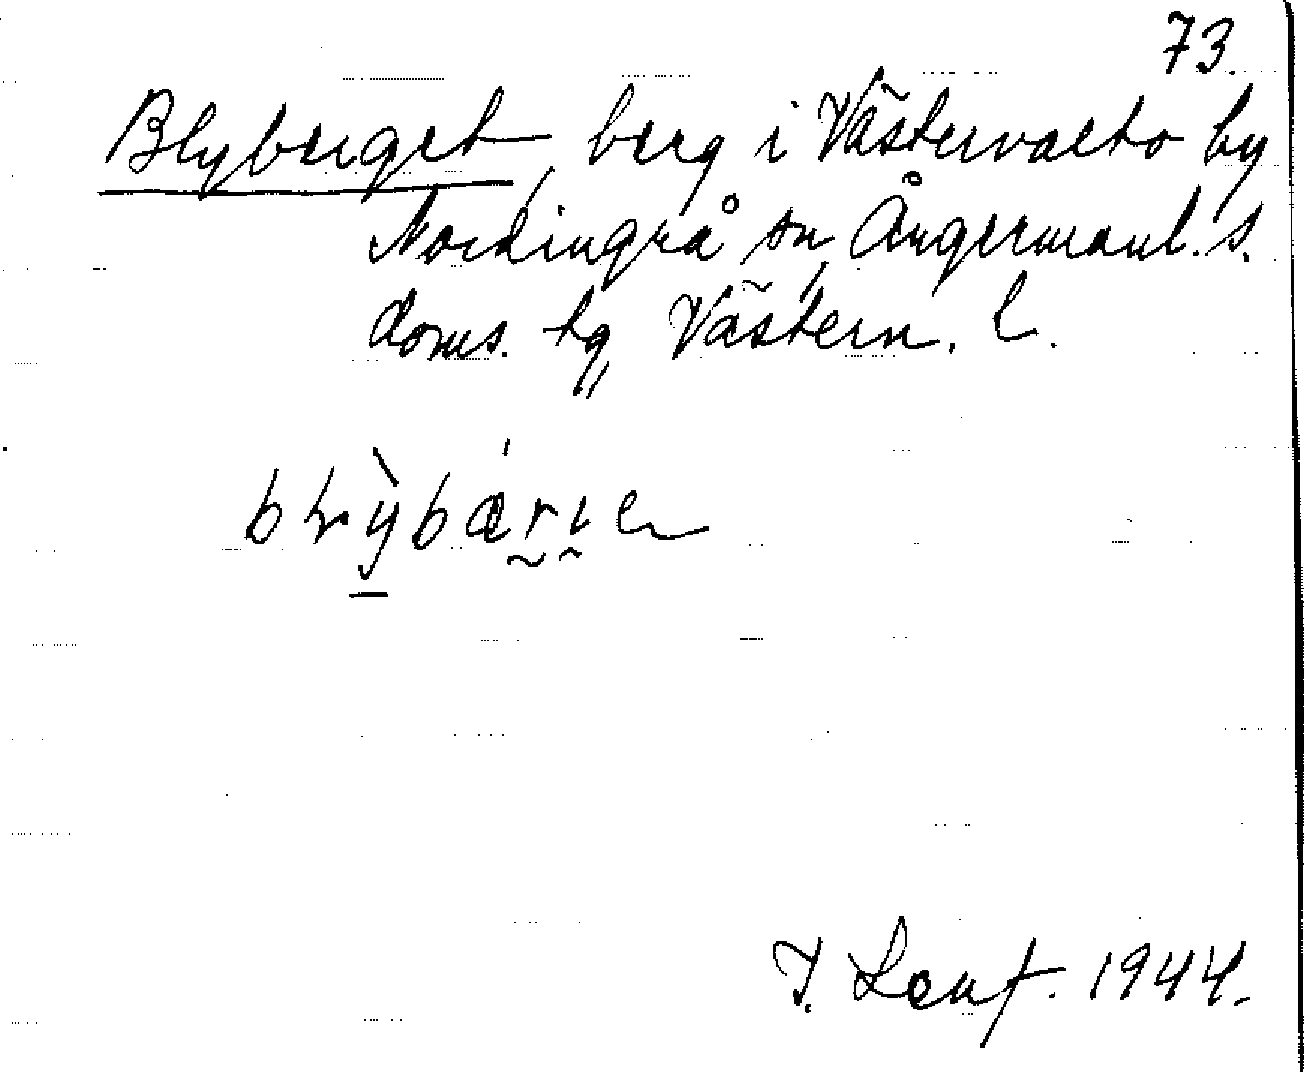 73.
Blyberget, berg i Västervalto by
Nordingrå sn, Ångermanl. s.
doms. tg, Västern. l.
1944.